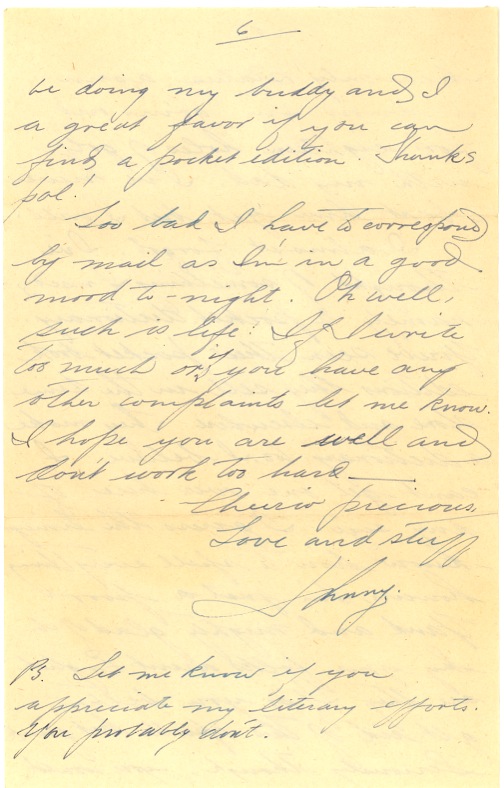 6
be doing my buddy and I
a great favor if you can
find a pocket edition. Thanks
pal!
Too bad I have to correspond
by mail as I'm in a good
mood to-night. Oh well,
such is life. If I write
too much or if you have any
other complaints let me know.
I hope you are well and
don't work too hard —
Cheerio precious.
Love and stuff
Johnny.
P.S. Let me know if you
appreciate my literary efforts.
You probably don't.